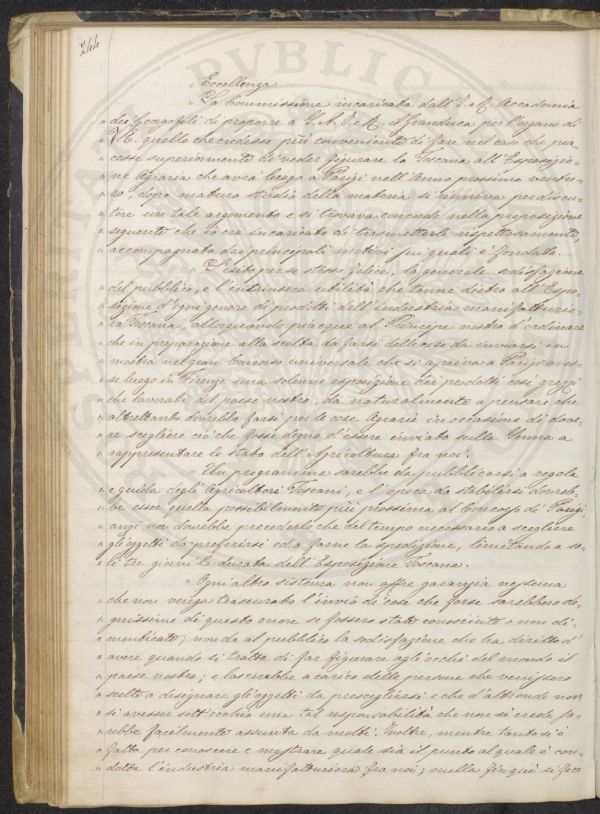 244
Eccellenza
La Commissione incaricata dall'I. e R. Accademia
dei Georgofili di proporre a S. A. I. e R. il Granduca per l'organo di
V. E. quello che credesse più conveniente di fare nel caso che pia-
cesse superiormente di veder figurare la Toscana all'Esposizio-
ne Agraria che avrà luogo a Parigi nell'Anno prossimo ventu-
ro, dopo maturo studio della materia si riuniva per discu-
tere un tale argomento e si trovava concorde nella proposizione
seguente che io era incaricato di trasmetterle rispettosamente,
accompagnata dai principali motivi sui quali è fondata.
L'esito per se stesso felice, la generale sodisfazione
del pubblico, e l'intrinseca utilità che tenne dietro all'Espo-
sizione d'ogni genere di prodotti dell'industria manifatturie-
ra Toscana, allorquando piacque al Principe nostro d'ordinare
che in preparazione alla scelta da farsi delle cose da inviarsi in
mostra nel gran Concorso universale che si apriva a Parigi aves-
se luogo in Firenze una solenne esposizione dei prodotti così greggi
che lavorati del paese nostro, dà naturalmente a pensare che
altrettanto dovrebbe farsi per le cose Agrarie in occasione di dove-
re scegliere ciò che fosse degno d'essere inviato sulla Senna a
rappresentare lo stato dell'Agricoltura fra noi.
Un programma sarebbe da pubblicarsi a regola
e guida degli Agricoltori Toscani, e l'epoca da stabilirsi dovreb-
be esser quella possibilmente più prossima al Concorso di Parigi,
anzi non dovrebbe precederlo che del tempo necessario a scegliere
gli oggetti da preferirsi ed a farne la spedizione, limitando a so-
li tre giorni la durata dell'Esposizione Toscana.
Ogni altro sistema non offre garanzia nessuna
che non venga trascurato l'invio di cose che forse sarebbero de-
gnissime di questo onore se fossero state conosciute e non di-
menticate; non dà al pubblico la sodisfazione che ha diritto d'
avere quando si tratta di far figurare agli occhi del mondo il
paese nostro; e lascerebbe a carico delle persone che venissero
scelte a designare gli oggetti da prescegliersi e che d'altronde non
si avesser sott'occhio una tal responsabilità che non si crede sa-
rebbe facilmente assunta da molti. Inoltre, mentre tanto si è
fatto per conoscere e mostrare quale sia il punto al quale è con-
dotta l'industria manifatturiera fra noi; nulla fin qui si fece